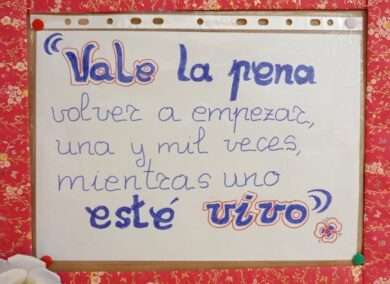 "Vale la pena
volver a empezar,
una y mil veces,
mientras uno
esté vivo"